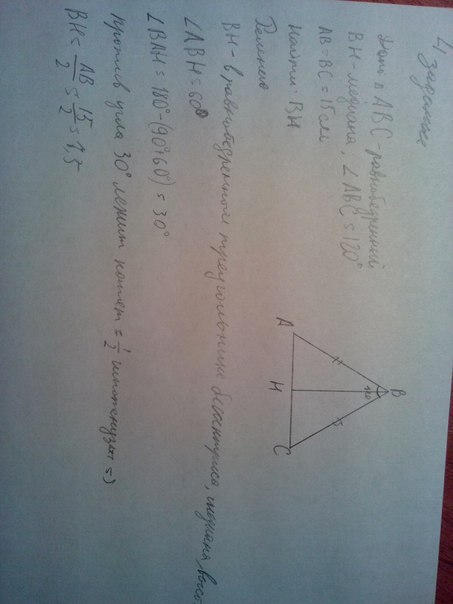 4 задание
Дано: Δ ABC - равнобедренный
BH - медиана, ∠ABC = 120°
AB = BC = 15 см
Найти: BH
Решение
BH - в равнобедренном треугольнике биссектриса, медиана, высо
∠ABH = 60°
∠BAH = 180° - (90°+60°) = 30°
против угла 30° лежит катет = 1/2 гипотенузы =>
BH = AB/2 = 15/2 = 7,5
B
120°
A
H
C